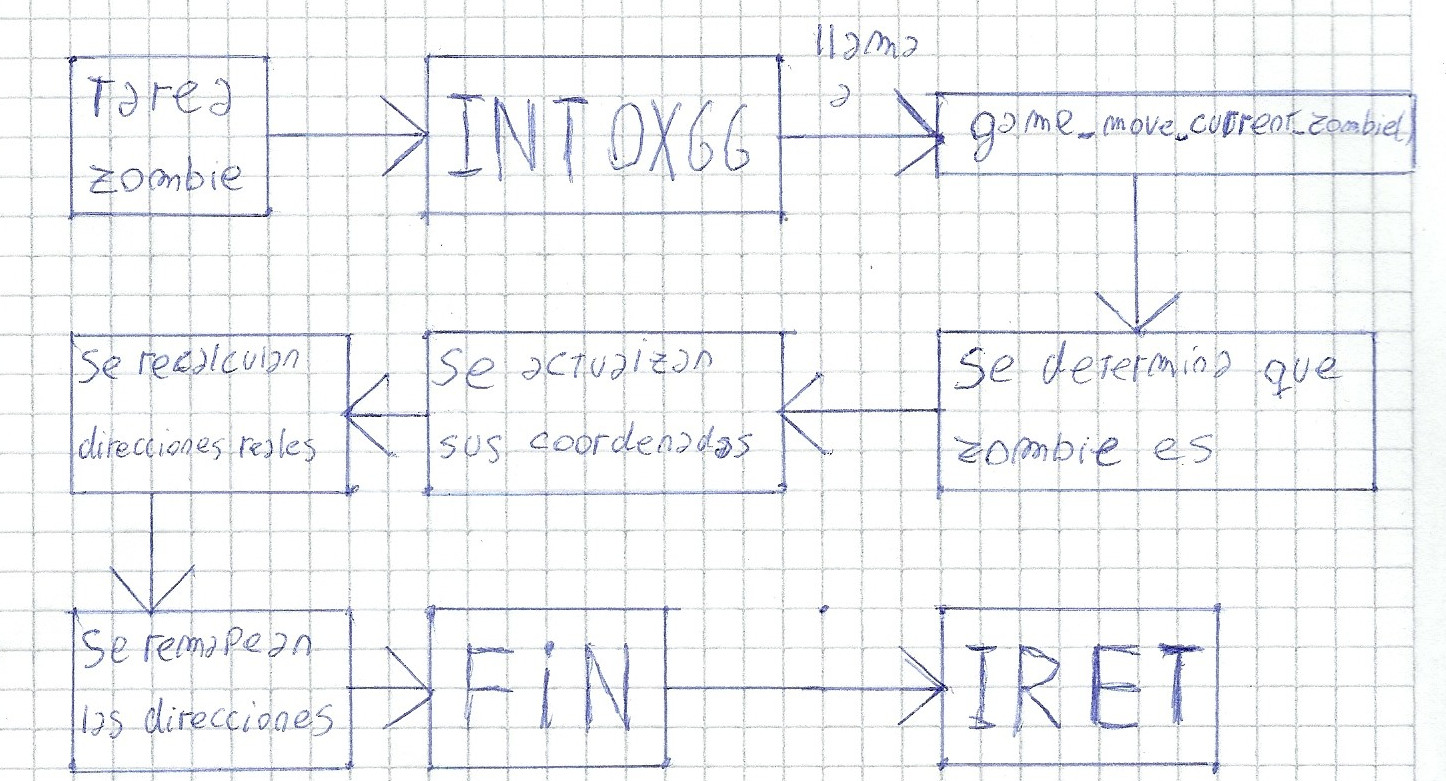 Tarea
zombie
INT 0X66
llama
a
game_move_current_zombie()
Se determina que
zombie es
Se actualizan
sus coordenadas
Se recalculan
direcciones reales
Se remapean
las direcciones
FIN
IRET